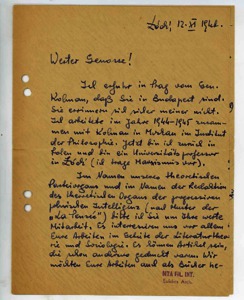 Łódź, 12.VI 1948.
Werter Genosse!
Ich erfuhr in Prag vom Gen.
Kolman, daß Sie in Budapest sind.
Sie erinnern sich sicher meiner nicht.
Ich arbeitete im Jahre 1944-1945 zusam-
men mit Kolman in Moskau im Institut
der Philosophie. Jetzt bin ich zurück in
Polen und bin ein Universitätsprofessor
in Łódź (ich trage Marxismus vor).
Im Namen unseres theoretischen
Parteiorgans und im Namen der Redaktion
des theoretischen Organs der progressiven
polnischen Intelligenz (auf Muster der
"La Pensée") bitte ich Sie um Ihre werte
Mitarbeit. Es interessieren uns vor allem
Eure Arbeiten im Gebiete der Literaturtheo-
rie und Soziologie. Es können Artikel sein,
die schon anderswo gedruckt waren. Wir
möchten Eure Arbeiten auch als Bücher he-
MTA FIL. INT.
Lukács Arch.